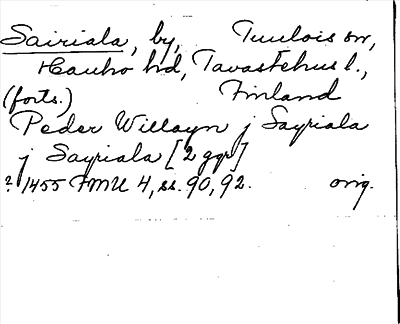 Sairiala, by, Tuulois sn,
Hauho hd, Tavastehus l.,
(forts.) Finland
Peder Willayn j Sayriala
j Sayriala [2 ggr]
? 1455 FMU 4, ss. 90, 92. orig.